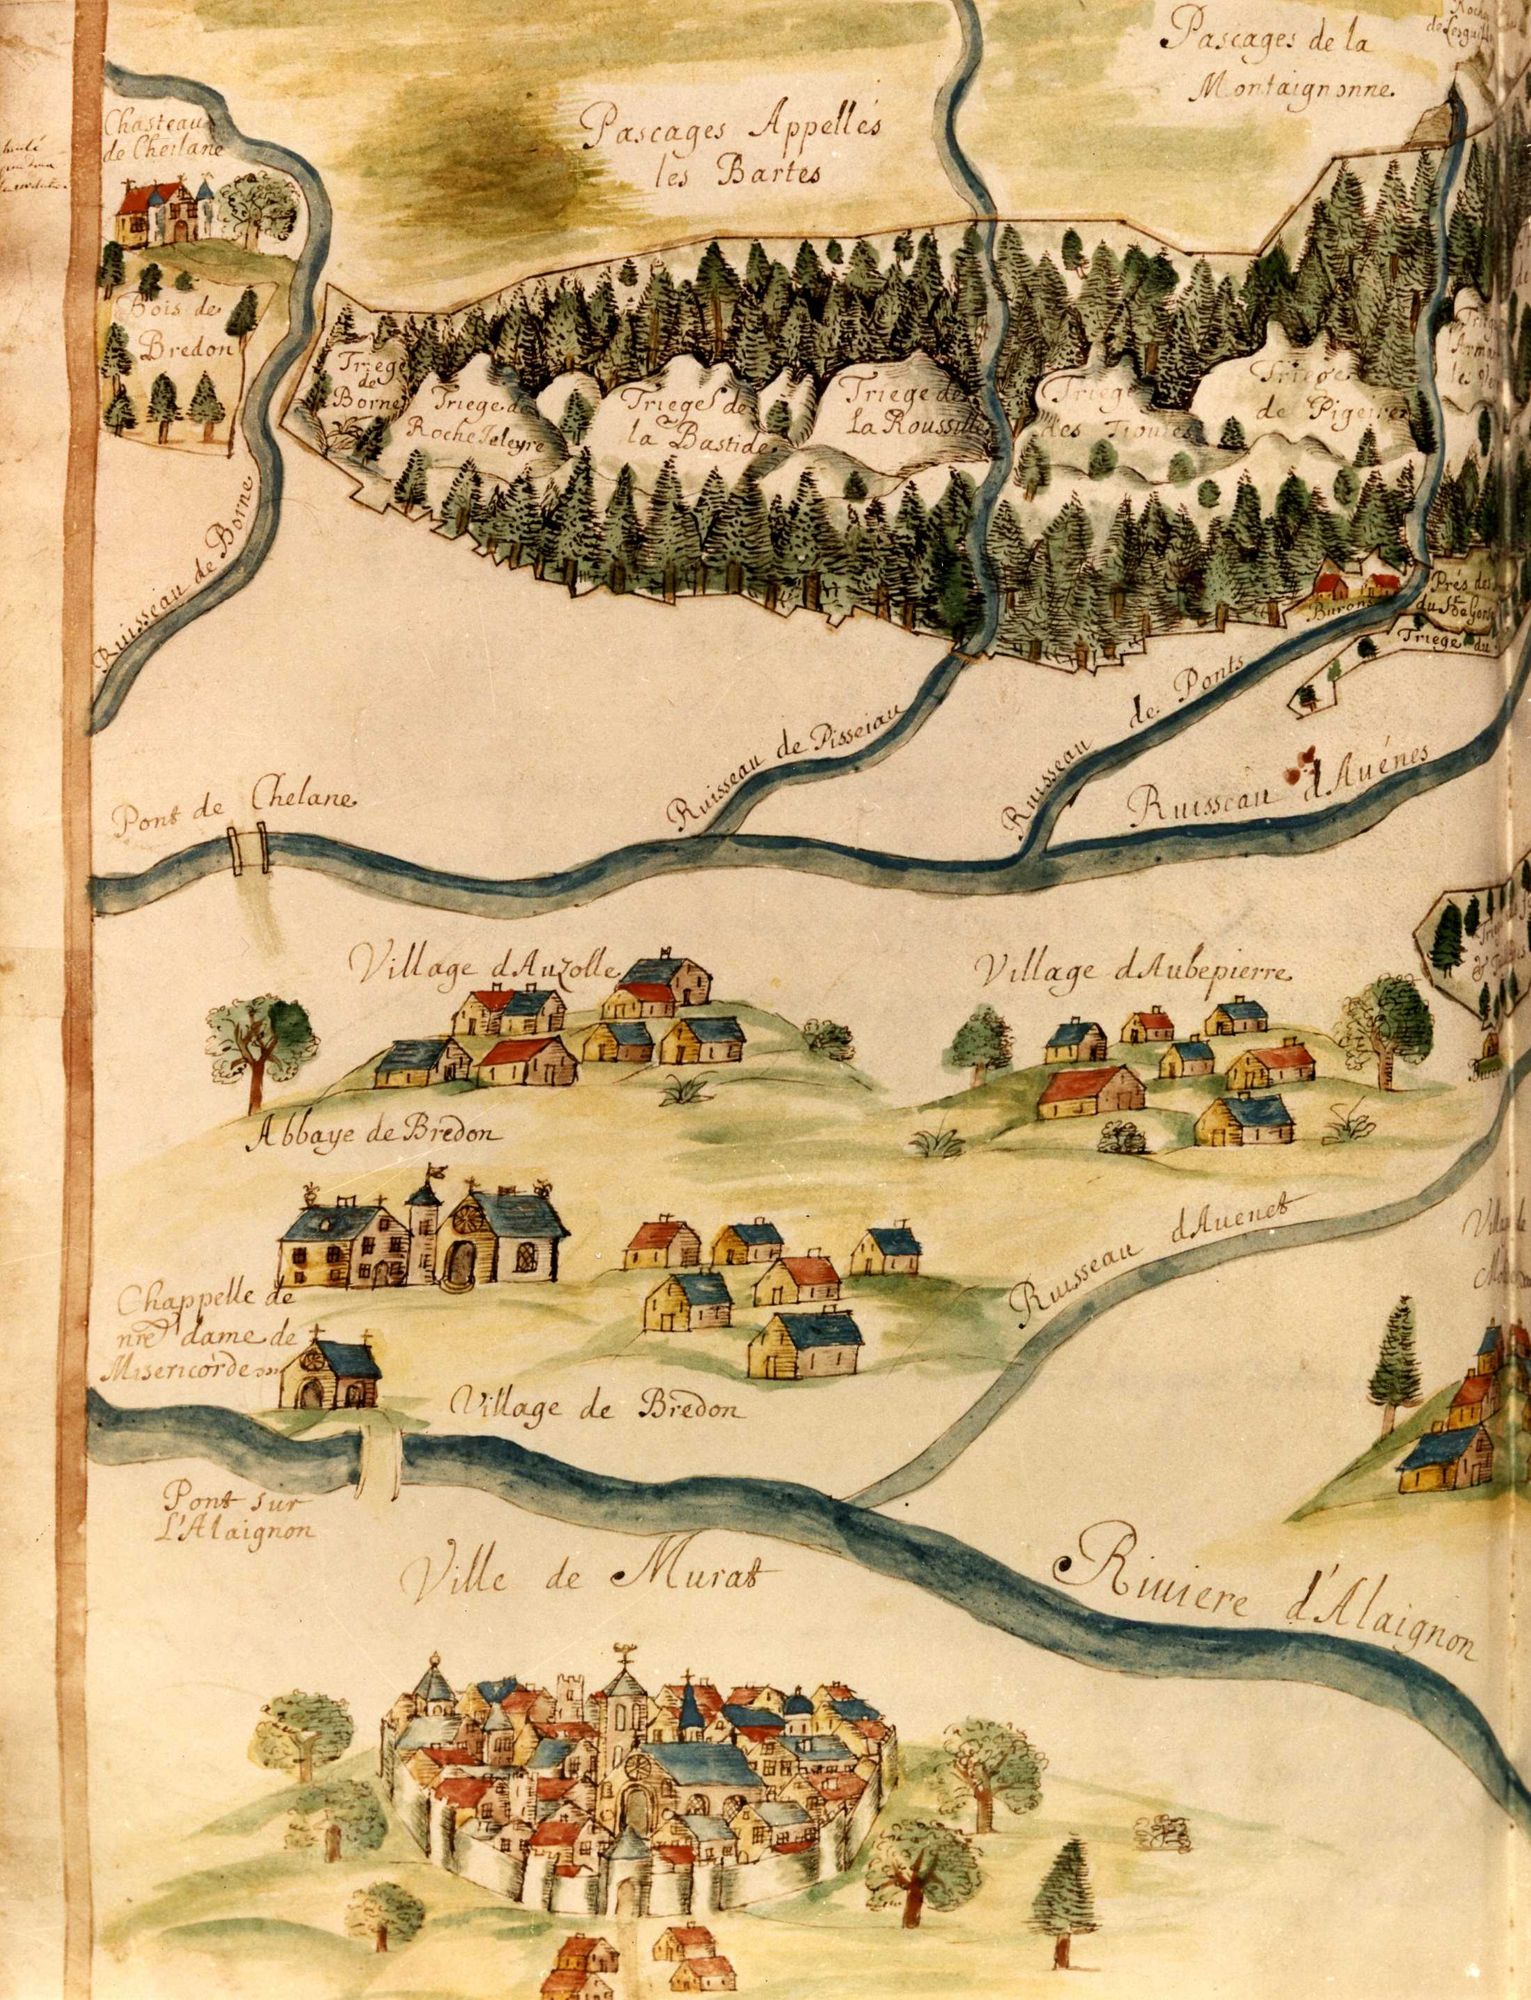 Pascages de la
Montaignonne.
Chasteau
de Cheilane
Pascages Appellés
les Bartes
Bois de
Bredon
Triege
de
Borne
Triege de
Roche Teleyre
Trieges de
la Bastide
Triege de
La Roussille
Triege
des Tioules
Triege
de Pigeire
Ruisseau de Borne
Burons
Prés des
Triege du
Ruisseau de Pisseiau
Ruisseau de Ponts
Ruisseau d'Auénes
Pont de Chelane
Village d'Auzolle
Village d'Aubepierre
Abbaye de Bredon
Ruisseau d'Auenet
Chappelle de
nre dame de
Misericorde
Village de Bredon
Pont sur
L'Alaignon
Ville de Murat
Riuiere d'Alaignon